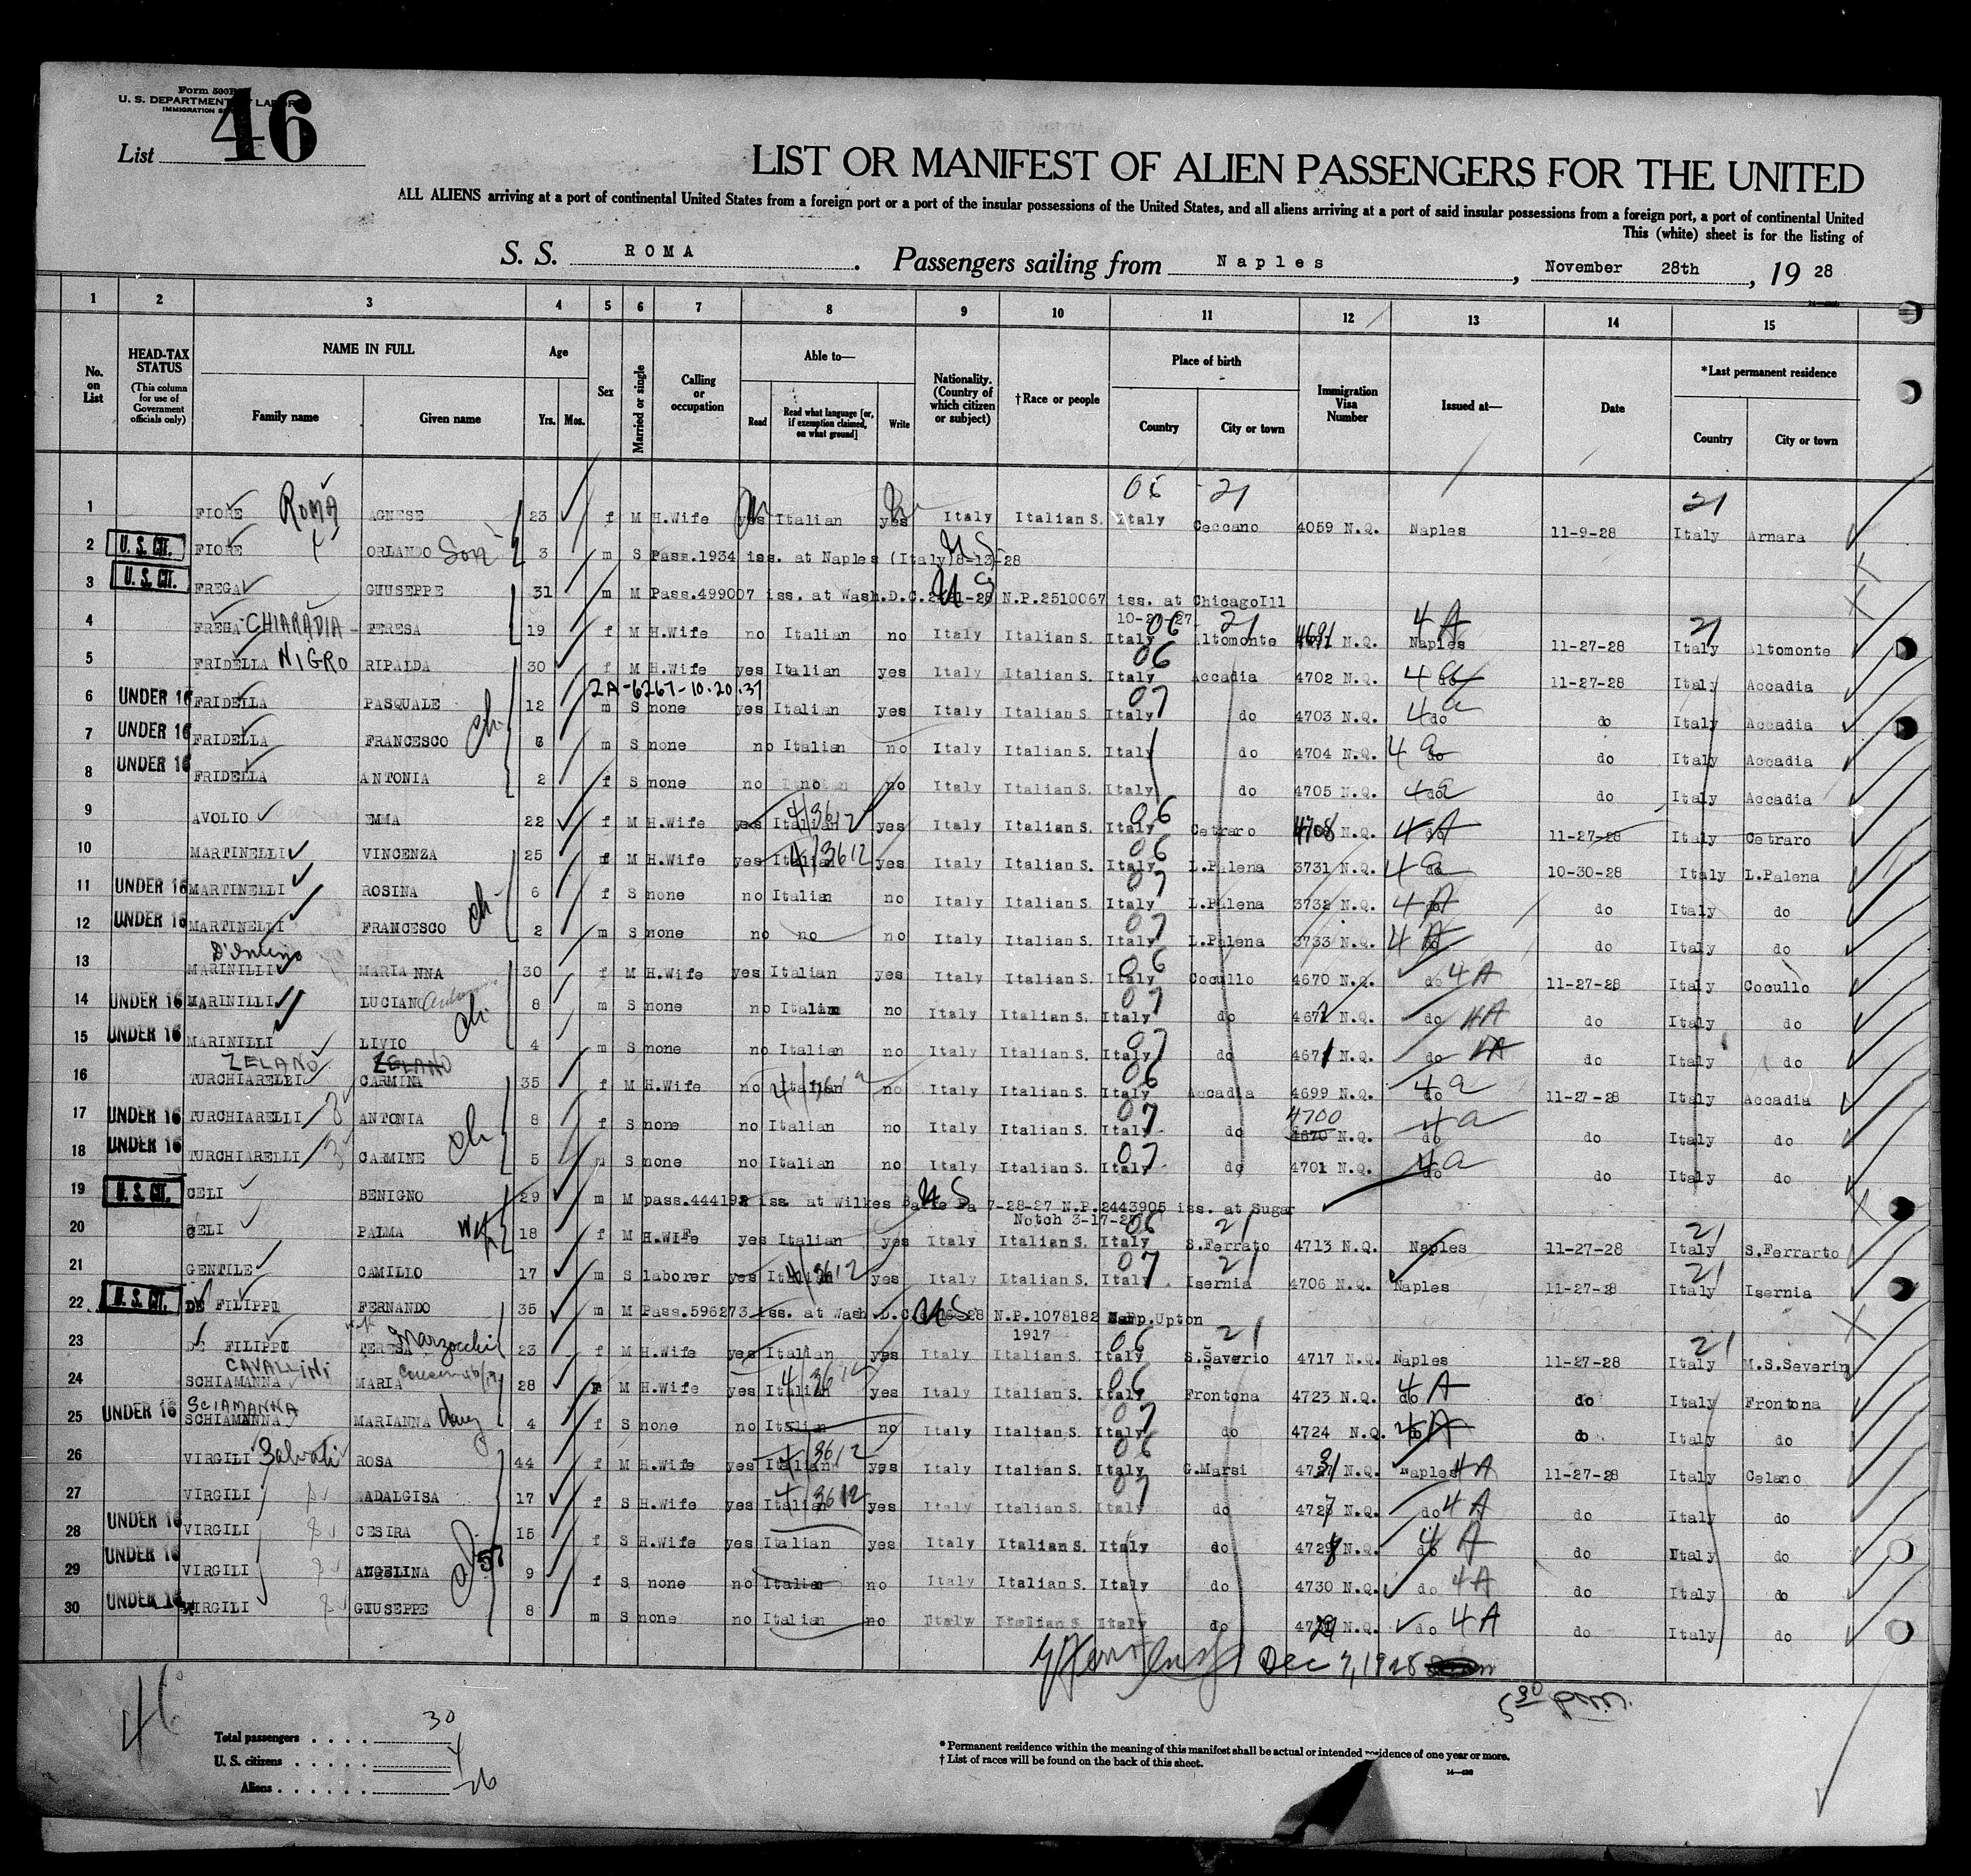 Form 500B
U. S. DEPARTMENT OF LABOR
IMMIGRATION
List 46
LIST OR MANIFEST OF ALIEN PASSENGERS FOR THE UNITED
ALL ALIENS arriving at a port of continental United States from a foreign port or a port of the insular possessions of the United States, and all aliens arriving at a port of said insular possessions from a foreign port, a port of continental United
This (white) sheet is for the listing of
S. S. ROMA. Passengers sailing from Naples, November 28th, 19 28
1 2 3 4 5 6 7 8 9 10 11 12 13 14 15
No. on List
HEAD-TAX STATUS (This column for use of Government officials only)
NAME IN FULL Family name Given name
Age Yrs. Mos.
Sex
Married or single
Calling or occupation
Able to— Read Read what language [or, if exemption claimed, on what ground] Write
Nationality. (Country of which citizen or subject)
†Race or people
Place of birth Country City or town
Immigration Visa Number
Issued at—
Date
*Last permanent residence Country City or town
06 21 21
1 FIORE ROMA AGNESE 23 f M H.Wife yes Italian yes Italy Italian S. Italy Ceccano 4059 N.Q. Naples 11-9-28 Italy Arnara
2 U. S. CIT. FIORE ORLANDO Son 3 m S Pass.1934 iss. at Naples (Italy)8-13-28 US
3 U. S. CIT. FREGA GIUSEPPE 31 m M Pass.499007 iss. at Wash.D.C. US N.P.2510067 iss. at ChicagoIll
4 CHIARADIA TERESA 19 f M H.Wife no Italian no Italy Italian S. Italy 06 21 Altomonte 4691 N.Q. 4 A Naples 11-27-28 21 Italy Altomonte
5 FRIDELLA NIGRO RIPALDA 30 f M H.Wife yes Italian yes Italy Italian S. Italy 06 Accadia 4702 N.Q. 4 a do 11-27-28 Italy Accadia
2A-6267-10.20.37
6 UNDER 16 FRIDELLA PASQUALE 12 m S none yes Italian yes Italy Italian S. Italy 07 do 4703 N.Q. 4 a do do Italy Accadia
7 UNDER 16 FRIDELLA FRANCESCO ch 6 m S none no Italian no Italy Italian S. Italy do 4704 N.Q. 4 a do do Italy Accadia
8 UNDER 16 FRIDELLA ANTONIA 2 f S none no no no Italy Italian S. Italy do 4705 N.Q. 4 a do do Italy Accadia
9 AVOLIO EMMA 22 f M H.Wife yes Italian 4/3612 yes Italy Italian S. Italy 06 Cetraro 4708 N.Q. 4 A do 11-27-28 Italy Cetraro
10 MARTINELLI VINCENZA 25 f M H.Wife yes Italian 4/3612 yes Italy Italian S. Italy 06 L.Palena 3731 N.Q. 4 a do 10-30-28 Italy L.Palena
11 UNDER 16 MARTINELLI ROSINA ch 6 f S none no Italian no Italy Italian S. Italy 07 L.Palena 3732 N.Q. 4 A do do Italy do
12 UNDER 16 MARTINELLI FRANCESCO 2 m S none no no no Italy Italian S. Italy 07 L.Palena 3733 N.Q. 4 A do do Italy do
13 MARINILLI MARIANNA 30 f M H.Wife yes Italian yes Italy Italian S. Italy 06 Cocullo 4670 N.Q. do 4 A 11-27-28 Italy Cocullo
14 UNDER 16 MARINILLI LUCIANO ch 8 m S none no Italian no Italy Italian S. Italy 07 do 4672 N.Q. do 4A do Italy do
15 UNDER 16 MARINILLI LIVIO 4 m S none no Italian no Italy Italian S. Italy 07 do 4671 N.Q. do 4A do Italy do
ZELANO ZELANO
16 TURCHIARELLI CARMINA 35 f M H.Wife no Italian no Italy Italian S. Italy 06 Accadia 4699 N.Q. 4 a do 11-27-28 Italy Accadia
17 UNDER 16 TURCHIARELLI ANTONIA ch 8 f S none no Italian no Italy Italian S. Italy 07 do 4700 4670 N.Q. 4 a do do Italy do
18 UNDER 16 TURCHIARELLI CARMINE 5 m S none no Italian no Italy Italian S. Italy 07 do 4701 N.Q. 4 a do do Italy do
19 U. S. CIT. CELI BENIGNO 29 m M pass.444198 iss. at Wilkes Barre Pa US 7-28-27 N.P.2443905 iss. at Sugar
Notch 3-17-27
20 CELI PALMA wife 18 f M H.WIFe yes Italian yes Italy Italian S. Italy 06 21 S.Ferrato 4713 N.Q. Naples 11-27-28 21 Italy S.Ferrarto
21 GENTILE CAMILLO 17 m S laborer yes Italian 4/3612 yes Italy Italian S. Italy 07 21 Isernia 4706 N.Q. Naples 11-27-28 21 Italy Isernia
22 U. S. CIT. DE FILIPPI FERNANDO 35 m M Pass.596273 iss. at Wash.D.C. US N.P.1078182 Camp.Upton
1917
23 DE FILIPPI TERESA Marzocchi 23 f M H.Wife yes Italian yes Italy Italian S. Italy 06 21 S.Saverio 4717 N.Q. Naples 11-27-28 21 Italy M.S.Severin
CAVALLINI
24 SCHIAMANNA MARIA 28 f M H.Wife yes Italian 4/3612 yes Italy Italian S. Italy 06 Frontona 4723 N.Q. 4 A do do Italy Frontona
SCIAMANNA
25 UNDER 16 SCHIAMANNA MARIANNA 4 f S none no Italian no Italy Italian S. Italy 07 do 4724 N.Q. 4 A do do Italy do
26 VIRGILI Salvati ROSA 44 f M H.Wife yes Italian 4/3612 yes Italy Italian S. Italy 06 G.Marsi N.Q. Naples 4A 11-27-28 Italy Celano
27 VIRGILI MADALGISA 17 f S H.Wife yes Italian 4/3612 yes Italy Italian S. Italy 07 do 4727 N.Q. do 4 A do Italy do
28 UNDER 16 VIRGILI CESIRA 15 f S H.Wife yes Italian yes Italy Italian S. Italy do 4728 N.Q. do 4 A do Italy do
29 UNDER 16 VIRGILI ANGELINA 9 f S none no Italian no Italy Italian S. Italy do 4730 N.Q. do 4A do Italy do
30 UNDER 16 VIRGILI GIUSEPPE 8 m S none no Italian no Italy Italian S. Italy do N.Q. do 4 A do Italy do
Dec 7, 1928
5 30 p.m.
46
Total passengers . . . . 30
U. S. citizens . . . . . 4
Aliens . . . . . . 26
* Permanent residence within the meaning of this manifest shall be actual or intended residence of one year or more.
† List of races will be found on the back of this sheet.